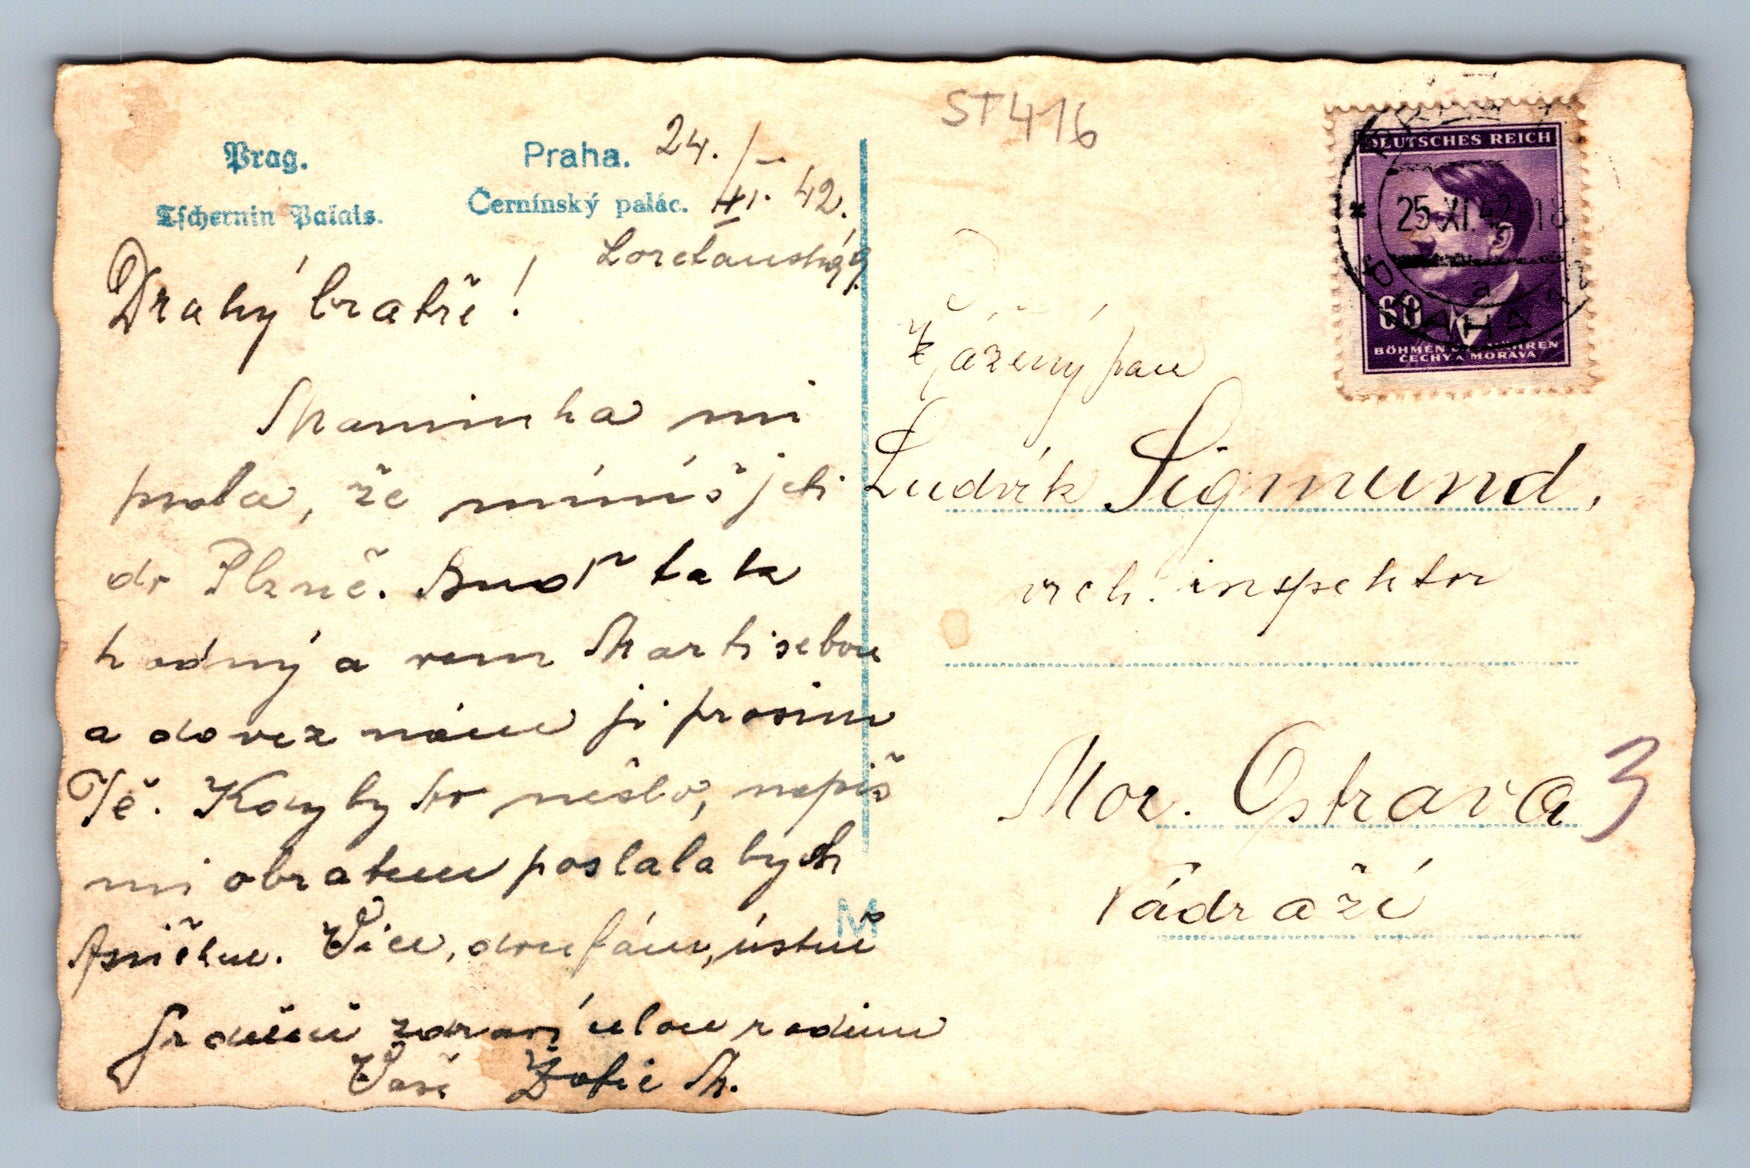 Prag.
Tschernin Palais.
Praha. 24./
Černínský palác. XI. 42.
Loretánská 9.
Drahý bratře!
Maminka mi
psala, že míníš jeti
do Plzně. Buď tak
hodný a vem s sebou
a dovez nám ji prosím
Tě. Kdyby to nešlo, napiš
mi obratem poslala bych
Více, doufám, ústně
Srdečně zdraví celou rodinu
Vaší Žofie M.
M
ST416
DEUTSCHES REICH
25.XI.42 18
PRAHA
a
60
BÖHMEN U. MÄHREN
ČECHY A MORAVA
Vážený pan
Ludvík Sigmund,
vrch. inspektor
Mor. Ostrava 3
Nádraží